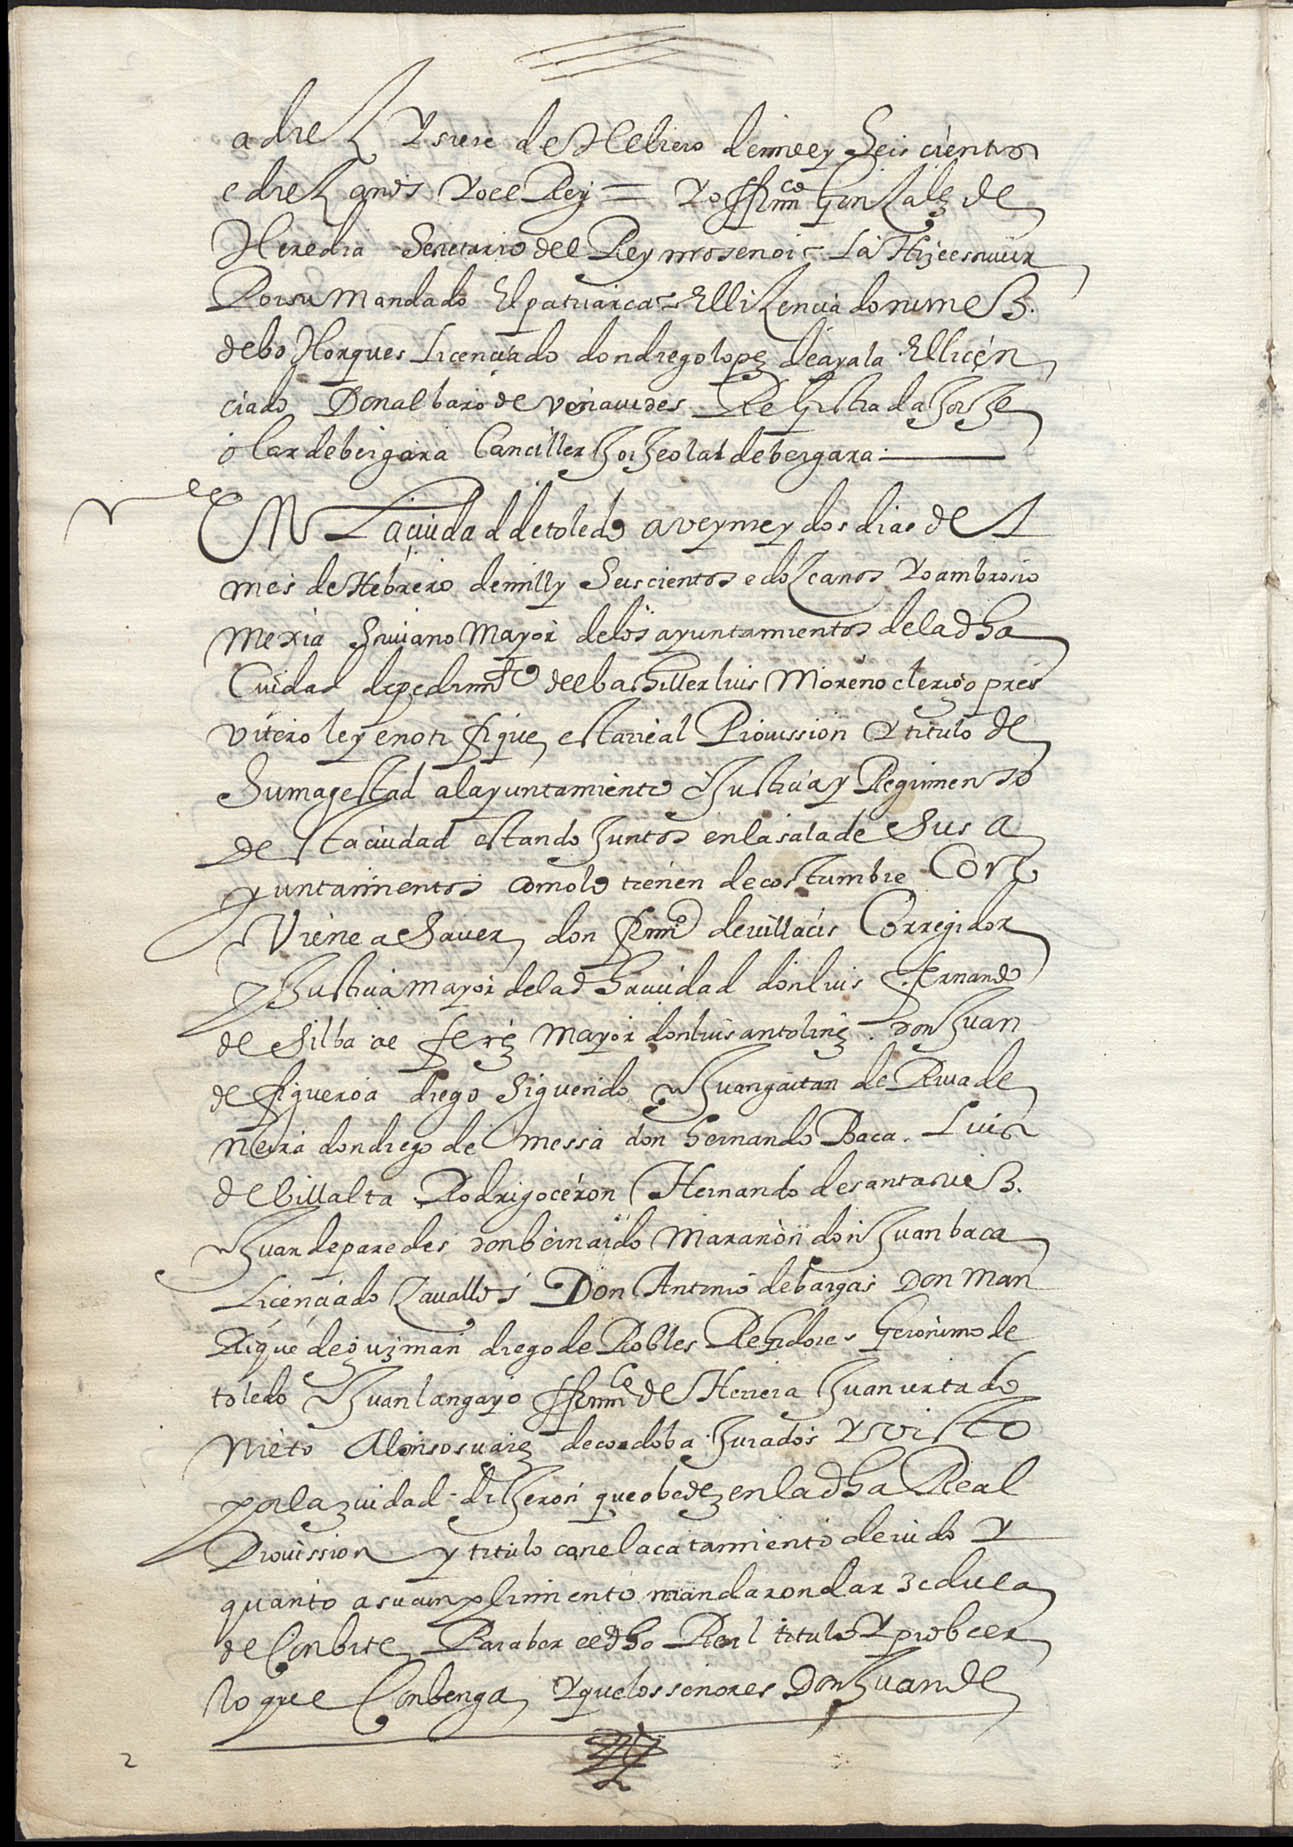 a diez Y siete de Hebrero de mill y Seis cientos
e diez años Yo el Rey = Yo ffranco Gonzalez de
Heredia Secretario del Rey nro señor La Hize escrivir
Por su mandado El patriarca El lizenciado nuñez
de bo Horques Licenciado don diego lopez de ayala El licen
ciado Don albaro de venavides Registrada Jorje
olar de bergara Canciller Jorje olal de bergara
EN La ciudad de toledo a veynte y dos dias del
mes de Hebrero de mill y Seiscientos e doze anos Yo ambrosio
mexia Scrivano Mayor de los ayuntamientos de la dha
Ciudad de pedimto del bachiller luis Moreno clerigo pres
vitero ley e notifique esta rreal Provission Y titulo de
Su magestad al ayuntamiento Justicia y Regimiento
de sta ciudad estando Juntos en la sala de Sus a
yuntamientos como lo tienen de costumbre Con
Viene a Saver don franco de villacis Corregidor
y Justicia mayor de la dha ciudad don luis fernando
de Silba al ferez Mayor don luis antolinez don Juan
de figueroa diego Siguendo Juan gaitan de Rivade
neira don diego de messa don hernando Baca Luis
de Villalta Rodrigo ceron Hernando de santa
Juan de paredes don bernardo Marañon don Juan baca
Licenciado Zavallos Don Antonio de bargas Don man
Rique de guzman diego de Robles Regidores Geronimo de
toledo Juan langayo ffranco de Herrera Juan urtado
nieto Alonso suarez de cordoba Jurados Y visto
por la zuidad dijeron que obedezen la dha Real
Provission y titulo con el acatamiento devido Y
quanto a su cumplimiento mandaron dar zedula
de Conbite Para ber el dho Real titulo Y probeer
lo que Conbenga Y que los señores Don Juan de
2